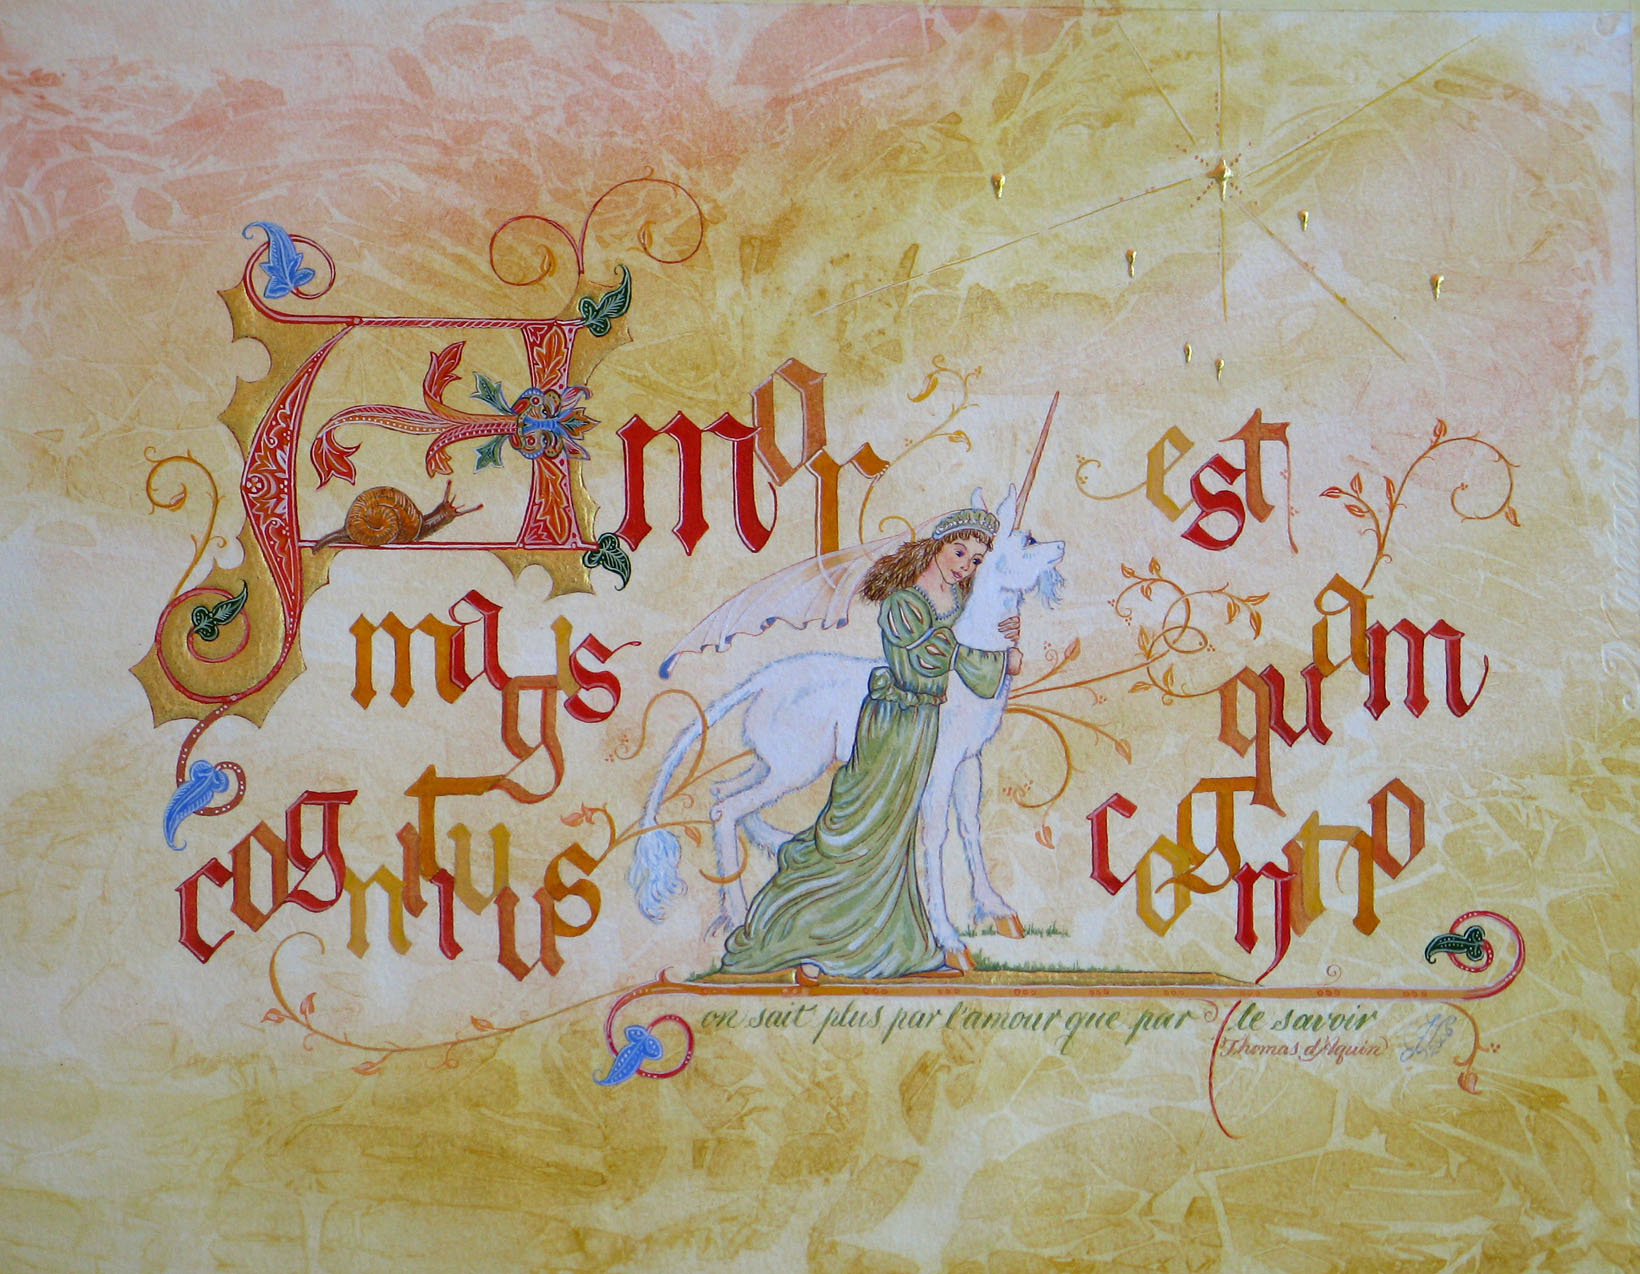 Amor est
magis quam
cognitiuus cognitio
on sait plus par l'amour que par le savoir
Thomas d'Aquin